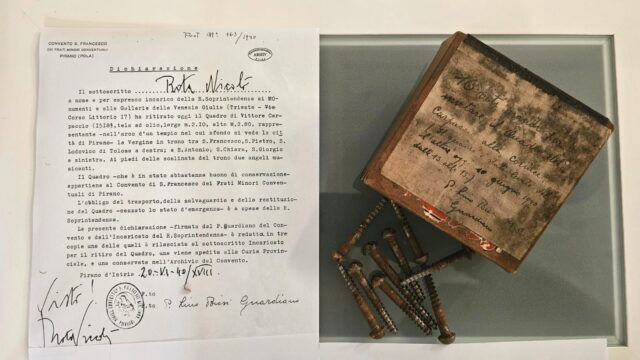 CONVENTO S. FRANCESCO
DEI FRATI MINORI CONVENTUALI
PIRANO (POLA)
Prot. Nº 163/1940
Dichiarazione
Il sottoscritto Rota Nicolò
a nome e per espresso incarico della R.Soprintendenza ai MO-
numenti e alle Gallerie della Venezia Giulia (Trieste - Via-
Corso Littorio I7) ha ritirato oggi il Quadro di Vittore Car-
paccio (I518), tela ad olio, largo m.2.I0, alto M.2.80, rappre-
sentante -nell'arco d'un tempio nel cui sfondo si vede la cit-
tà di Pirano- la Vergine in trono tra S.Francesco, S.Pietro, S.
Lodovico di Tolosa a destra; e S.Antonio, S.Chiara, S.Giorgio
a sinistra. Ai piedi delle scalinate del trono due angeli mu-
sicanti.
Il Quadro -che è in stato abbastanza buono di conservazione-
appartiene al Convento di S.Francesco dei Frati Minori Conven-
tuali di Pirano.
L'obbligo del trasporto, della salvaguardia e della restituzione
del Quadro -cessato lo stato d'emergenza- è a spese della R.
Soprintendenza.
La presente dichiarazione -firmata dal P.Guardiano del Convento
e dall'Incaricato del R.Soprintendenza- è redatta in tre
copie una delle quali è rilasciata al sottoscritto Incaricato
per il ritiro del Quadro, una viene spedita alla Curia Provin-
ciale, e una conservata nell'Archivio del Convento.
Pirano d'Istria 20-VI-40/XVIII
Visto!
F.to
P. Lino Guardiano
Carpaccio alla
20 giugno 1940
P. Lino
Guardiano